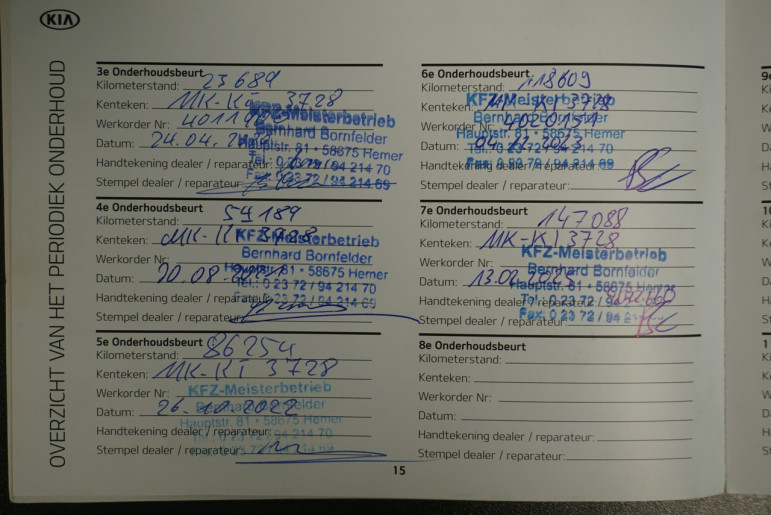 KIA
OVERZICHT VAN HET PERIODIEK ONDERHOUD
3e Onderhoudsbeurt
Kilometerstand: 23689
Kenteken: MK-KI 3728
Werkorder Nr:
Datum: 24.04.
Handtekening dealer / reparateur:
Stempel dealer / reparateur:
KFZ-Meisterbetrieb
Bernhard Bornfelder
Hauptstr. 81 • 58675 Hemer
Tel.: 0 23 72 / 94 214 70
Fax: 0 23 72 / 94 214 69
4e Onderhoudsbeurt
Kilometerstand: 54189
Kenteken: MK-KI 3728
Werkorder Nr:
Datum: 20.08.
Handtekening dealer / reparateur:
Stempel dealer / reparateur:
KFZ-Meisterbetrieb
Bernhard Bornfelder
Hauptstr. 81 • 58675 Hemer
Tel.: 0 23 72 / 94 214 70
Fax: 0 23 72 / 94 214 69
5e Onderhoudsbeurt
Kilometerstand: 86254
Kenteken: MK-KI 3728
Werkorder Nr:
Datum: 26.10.2022
Handtekening dealer / reparateur:
Stempel dealer / reparateur:
KFZ-Meisterbetrieb
Bernhard Bornfelder
Hauptstr. 81 • 58675 Hemer
Tel.: 0 23 72 / 94 214 70
6e Onderhoudsbeurt
Kilometerstand: 118609
Kenteken: MK-KI 3728
Werkorder Nr: 4020131
Datum:
Handtekening dealer / reparateur:
Stempel dealer / reparateur:
KFZ-Meisterbetrieb
Bernhard Bornfelder
Hauptstr. 81 • 58675 Hemer
Tel.: 0 23 72 / 94 214 70
Fax: 0 23 72 / 94 214 69
7e Onderhoudsbeurt
Kilometerstand: 147088
Kenteken: MK-KI 3728
Werkorder Nr:
Datum: 13.02.2025
Handtekening dealer / reparateur:
Stempel dealer / reparateur:
KFZ-Meisterbetrieb
Bernhard Bornfelder
Hauptstr. 81 • 58675 Hemer
Tel.: 0 23 72 /
Fax: 0 23 72 / 94
8e Onderhoudsbeurt
Kilometerstand:
Kenteken:
Werkorder Nr:
Datum:
Handtekening dealer / reparateur:
Stempel dealer / reparateur:
15